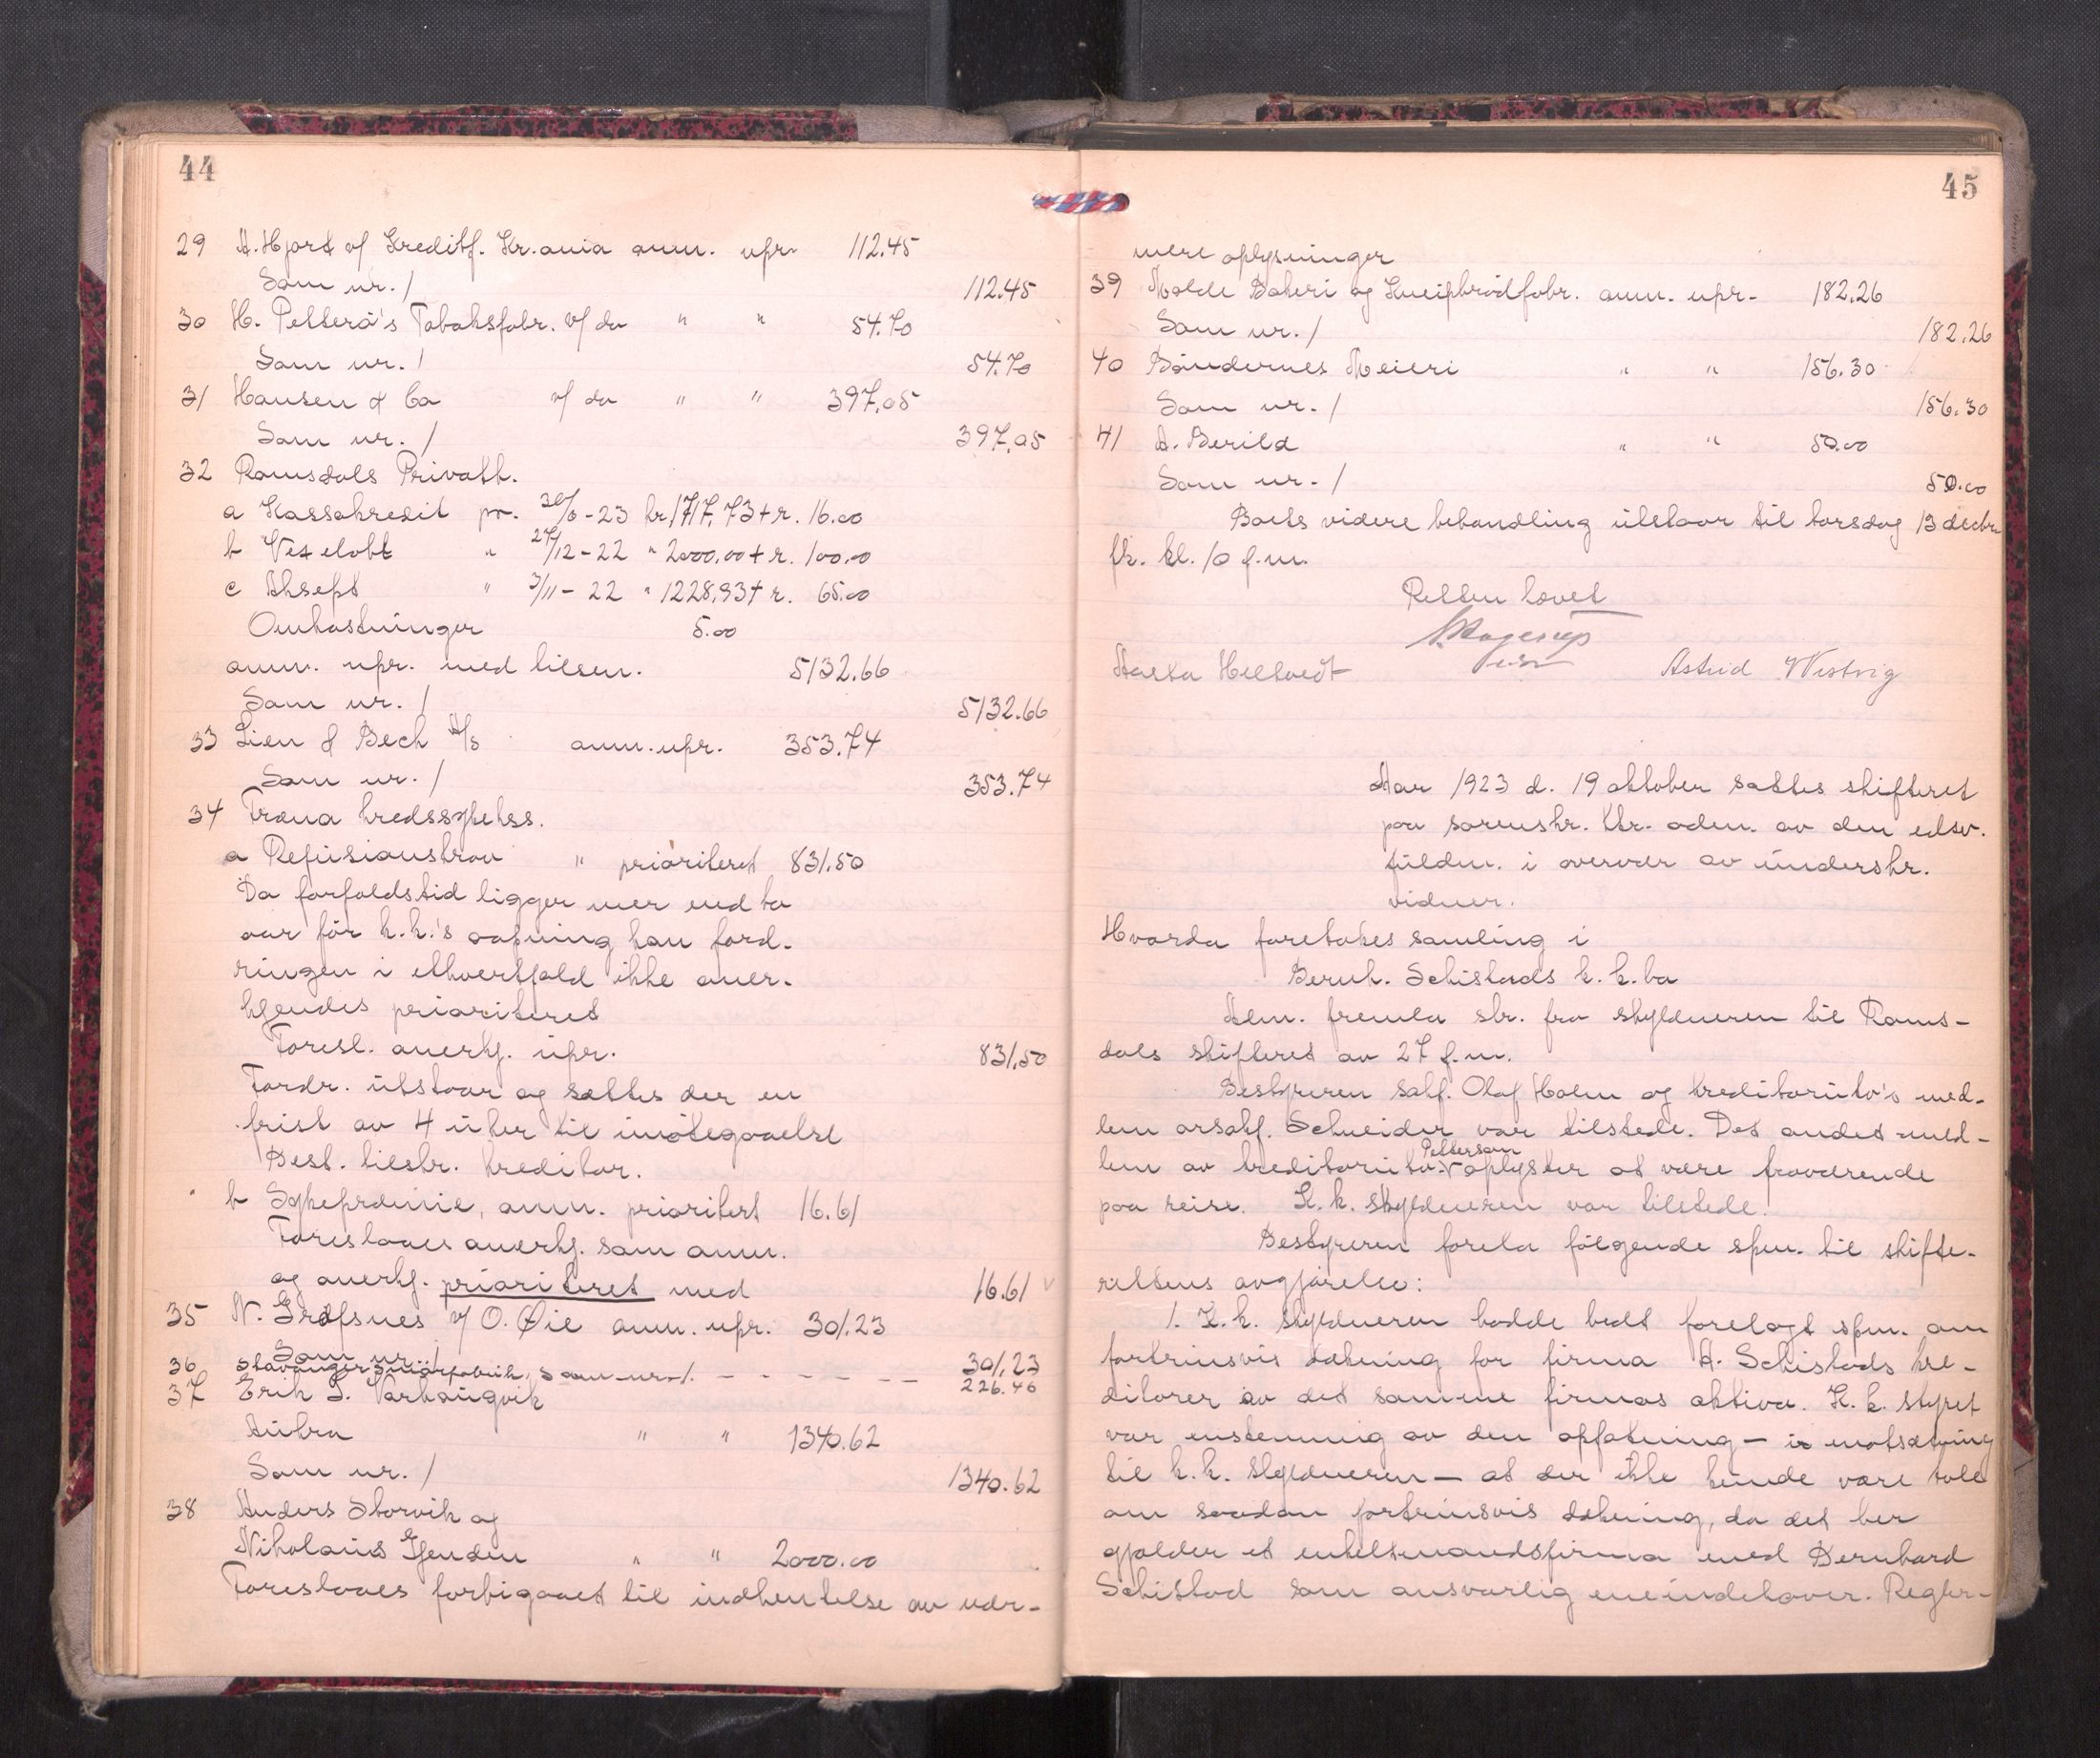 44
29 A. Hjort v/ Kreditf. Kr.ania anm. upr. 112.45
Som nr. 1 112.45
30 H. Petterö's Tobaksfabr. v/ do " " 54.70
Som nr. 1 54.70
31 Hansen & Co v/ do " " 397,05
Som nr. 1 397,05
32 Romsdals Privatb.
a Kassakredit pr. 30/6-23 kr. 1717,73 + r. 16.00
b Vexelobl " 27/12-22 " 2000,00 + r. 100.00
c Aksept " 3/11-22 " 1228,93 + r. 65.00
Omkostninger 5.00
anm. upr. med tilsen. 5132.66
Som nr. 1 5132.66
33 Lien & Bech A/s anm. upr. 353.74
Som nr. 1 353.74
34 Fræna kredssykekss.
a Refusionskrav " prioritert 831.50
Da forfaldstid ligger mer end to
aar før k.k.'s aapning kan ford-
ringen i ethvertfald ikke aner-
kjendes prioriteret
Foresl. anerkj. upr. 831,50
Fordr. utstaar og sættes der en
frist av 4 uker til imøtegaaelse
Best. tilskr. kreditor.
b Sykepræmie, anm. prioritert 16.61
Foreslaaes anerkj. som anm.
og anerkj. prioriteret med 16.61
35 N. Gräfsnes v/ O. Øie anm. upr. 301.23
Som nr. 1 301.23
36 Stavanger Smörfabrik, Som nr. 1. - - - - - - 226.40
37 Erik L. Varhaugvik
Aukra " " 1340.62
Som nr. 1 1340.62
38 Anders Storvik og
Nikolaus Gjendem " " 2000.00
Foreslaaes forbigaaet til indhentelse av nær-
45
mere oplysninger
39 Molde Bakeri og Kneipbrödfabr. anm. upr- 182.26
Som nr. 1 182.26
40 Bøndernes Meieri " " 156.30
Som nr. 1 156.30
41 A. Berild " " 50.00
Som nr. 1 50.00
Boets videre behandling utstaar til torsdag 13 decbr
fk. kl. 10 f.m.
Retten hævet
Hagerup
Marta Heltvedt Astrid Westvig
Aar 1923 d. 19 oktober sattes skifteret
paa sorenskr. ktr. adm. av den edsv.
fuldm. i overvær av underskr.
vidner.
Hvorda foretokes samling i
Bernh. Schistads k. k. bo
Adm. fremla skr. fra skyldneren til Roms-
dals skifteret av 27 f.m.
Bestyreren sakf. Olaf Holm og kreditorutv's med-
lem orsakf. Schneider var tilstede. Det andet med-
lem av kreditorutv. Petterson oplystes at være fraværende
paa reise. K. k. skyldneren var tilstede.
Bestyreren forela følgende spm. til skifte-
rettens avgjørelse:
1. K. k. skyldneren hadde bedt forelagt spm. om
fortrinsvis dækning for firma A. Schistads kre-
ditorer av det samme firmas aktiva. K. k. styret
var enstemmig av den opfatning - i motsætning
til k. k. skyldneren - at der ikke kunde være tale
om saadan fortrinsvis dækning, da det her
gjælder et enkeltmandsfirma med Bernhard
Schistad som ansvarlig eneindehaver. Regler-